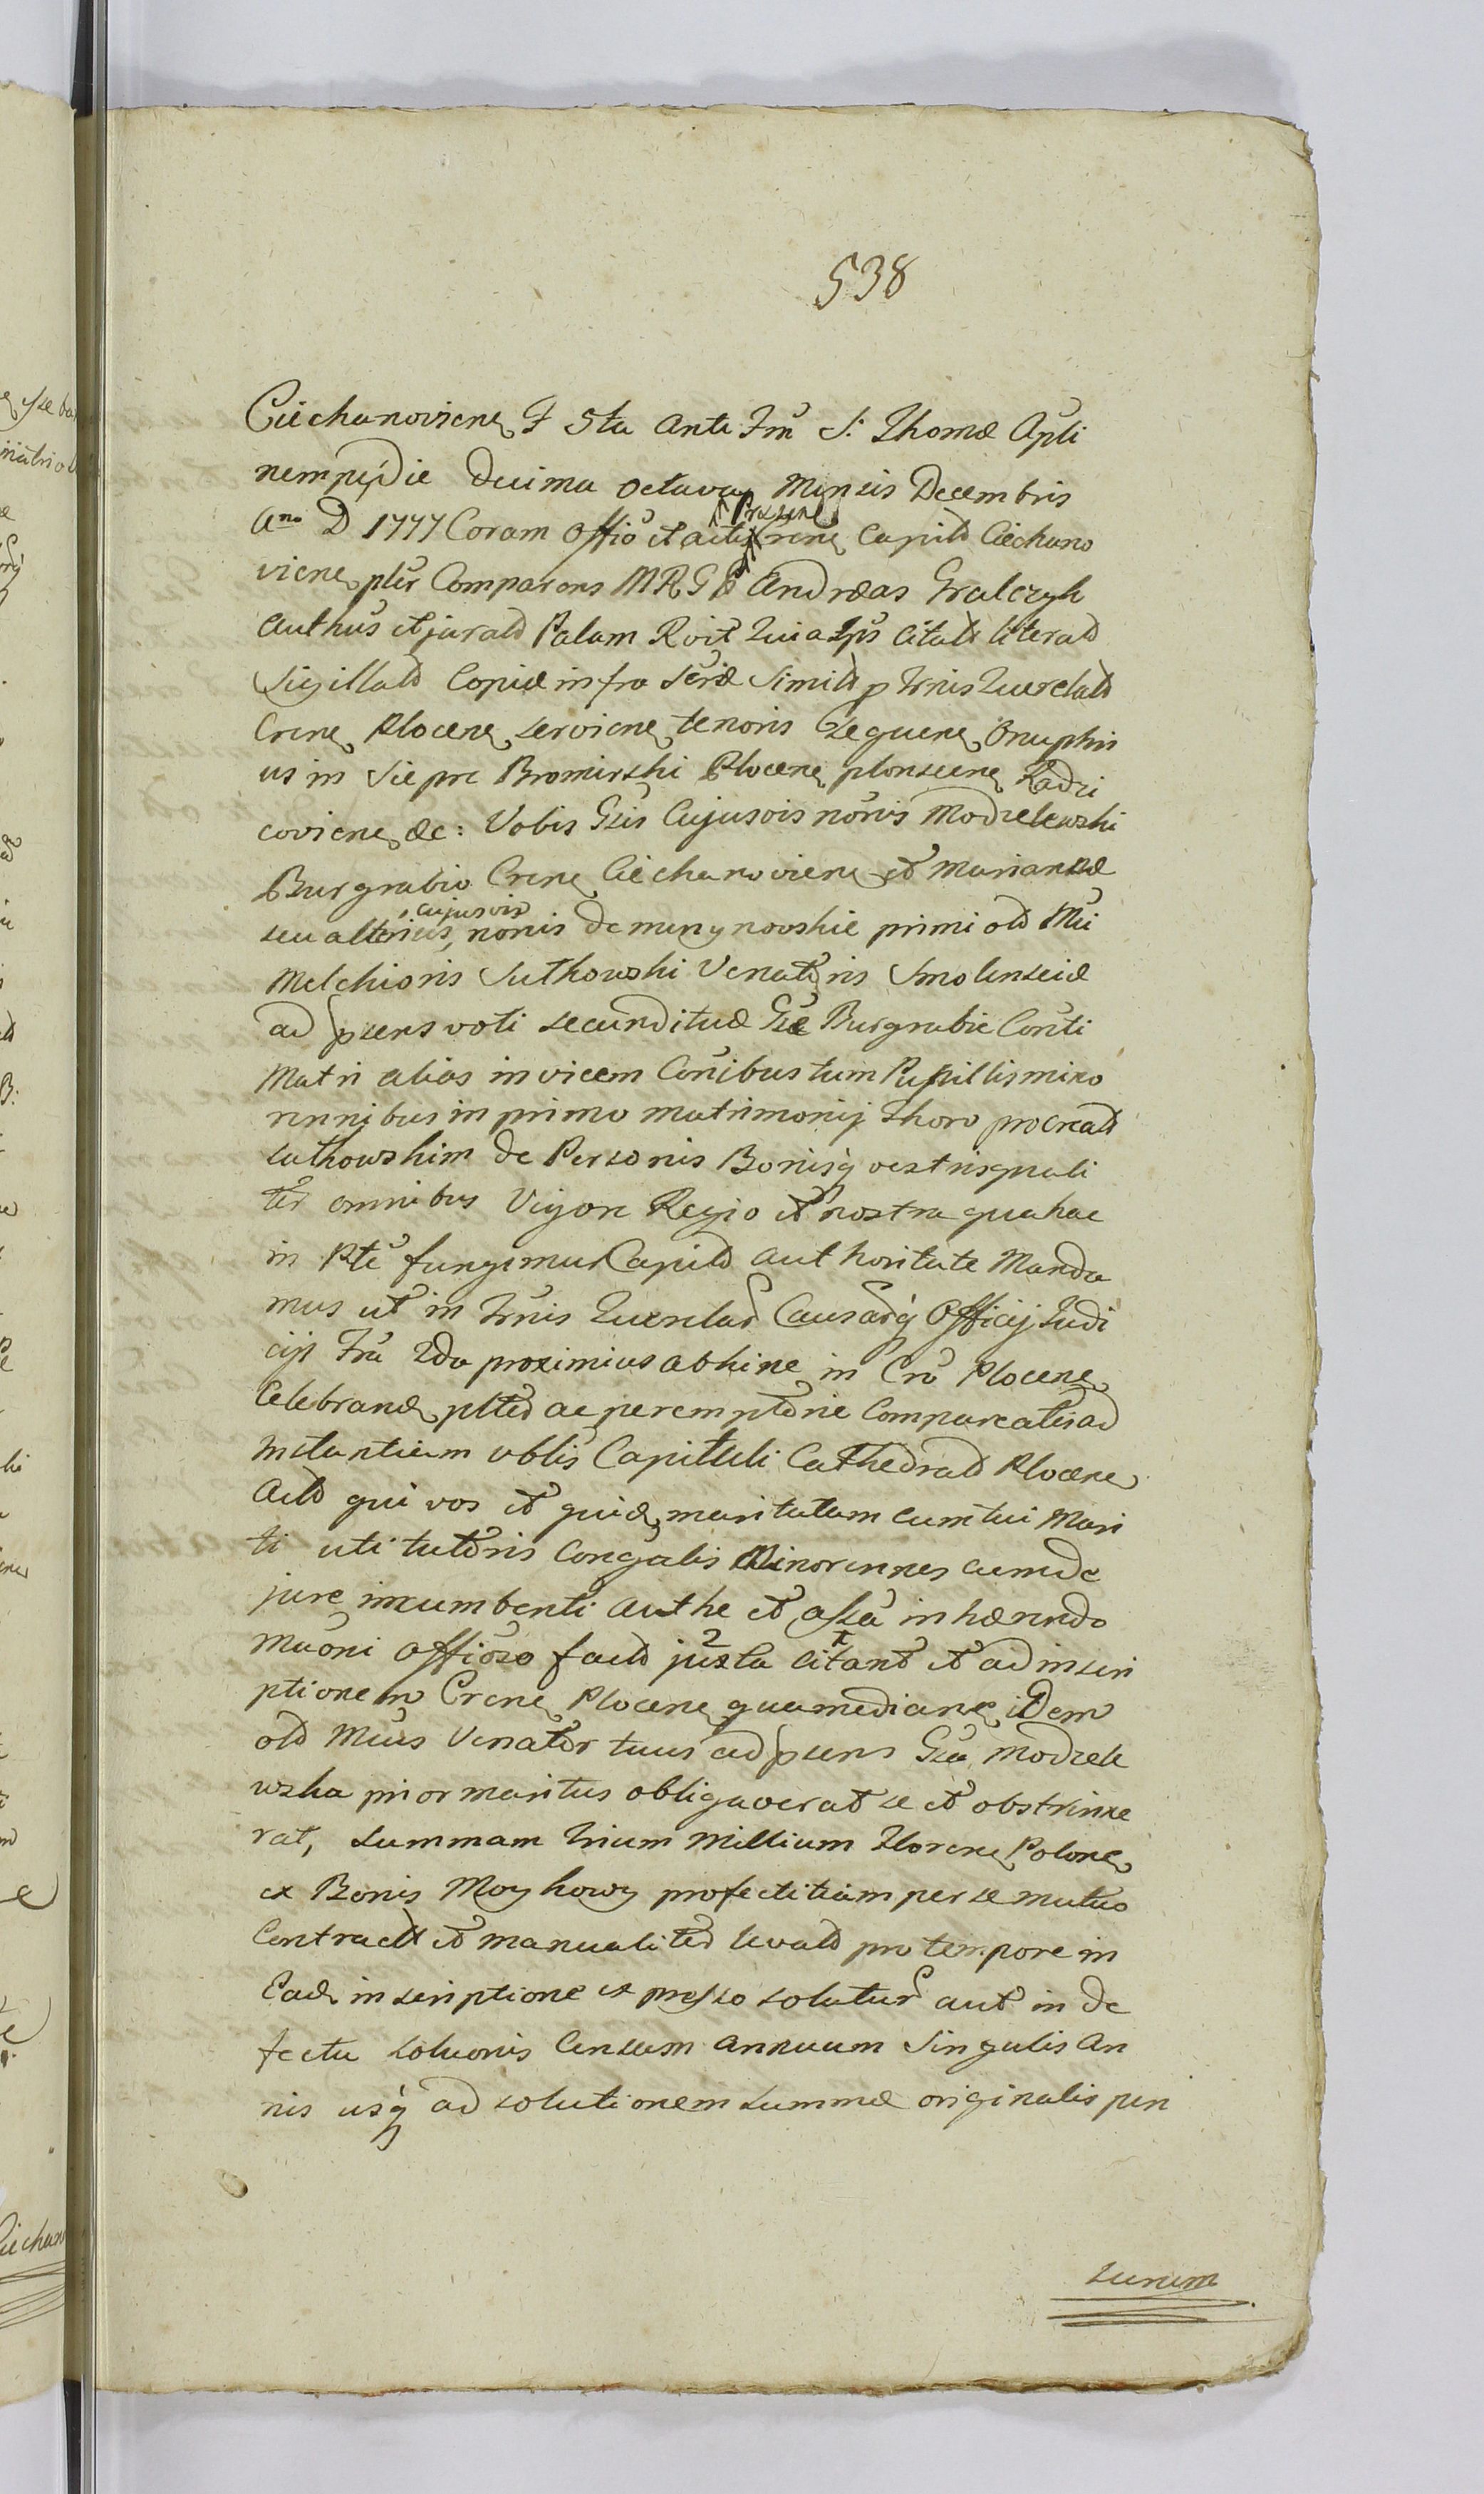 538
Ciechanoviene F 5ta Ante Fm̃ S. Thomæ Apl̃i
nempe die Decima octava Mensis Decembris
Ano D 1777 Coram Offiõ et actis præsene Crene Capitł Ciechano
viene pl̃ir Comparens MRGD Andreas Gralczyk
Authus et jurałd Palam Roit Quia Ips Citałd literałd
Sigillałd Copiæ infra Seriæ Similłd Trnis Querelałd
Crene Plocene serviene tenoris Seguene Onuphri
us in Sieprc Bromirski Plocene plonscene Radzi
coviene &c: Vobis Gsis Cujusvis nõnis Modzelewski
Burgrabio Crene Ciechanoviene et Mariannæ
seu alterius, cujusvis nonis de miny nowskie primi old Mũi
Melchioris Sutkowski Venatõris Smolensciæ
ad psens voti secundituæ Gsæ Burgrabie Conti
Matri alias invicem Conibus tum Pupillis mino
rennibus in primo matrimonij thoro procreałd
sutkowskim de Personis Bonisq vestris gnali
ter omnibus Vigore Regio et nostra qua hac
in Pte fungimur Capitł authoritate Manda
mus ut in Trnis Querelar Causarq Officij Judi
cijs Fra 2da proximius abhinc in Crõ Plocene
Celebrand pltes ac peremptõrie Compareatis ad
Instantiam vblis Capituli Cathedrałd Plocene
Actõ qui vos et quid maritatam cum tui Mari
ti uti tutoris Congalis Minorennes cum de
jure incumbenti authe et assã inhærendo
Muõni offioso factõ juxta 2 citand 1 et ad inscri
ptionem Crene Plocene qua mediane idem
old Mũus Venator tuus ad psens Gsa Modzele
wska prior maritus obligaverat se et obstrinxe
rat, summam Trium Millium Florene Polone
ex Bonis Moykowy profectitiam per se mutuo
Contractł et manualiter levałd pro tempore in
Ead inscriptione expresso solutur aut in de
fectu soluonis Censum annuum Singulis An
nis usq ad solutionem summæ originalis pen
surum